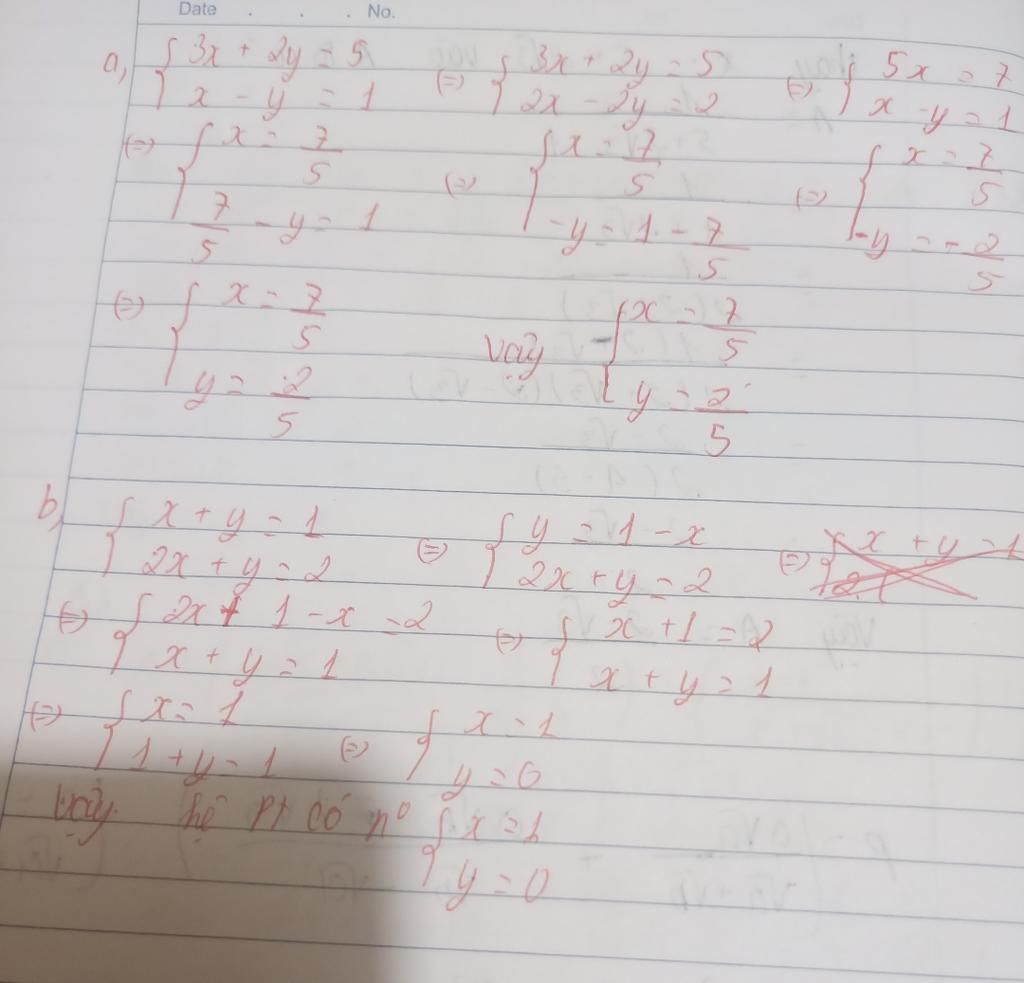 Date . . . No.
a, { 3x + 2y = 5 ; x - y = 1 (=) { 3x + 2y = 5 ; 2x - 2y = 2 (=) { 5x = 7 ; x - y = 1
(=) { x = 7/5 ; 7/5 - y = 1 (=) { x = 7/5 ; -y = 1 - 7/5 (=) { x = 7/5 ; -y = -2/5
(=) { x = 7/5 ; y = 2/5 vậy { x = 7/5 ; y = 2/5
b, { x + y = 1 ; 2x + y = 2 (=) { y = 1 - x ; 2x + y = 2 (=) { x + y = 1
(=) { 2x + 1 - x = 2 ; x + y = 1 (=) { x + 1 = 2 ; x + y = 1
(=) { x = 1 ; 1 + y = 1 (=) { x = 1 ; y = 0
Vậy hệ pt có n⁰ { x = 1 ; y = 0